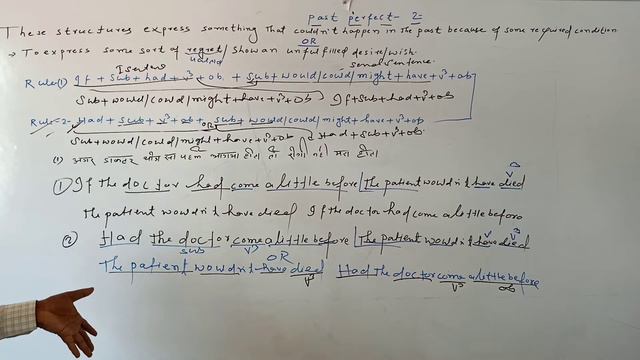 past perfect - 2
These structures express something that couldn't happen in the past because of some required condition
OR
→ To express some sort of regret/show an unfulfilled desire/wish.
Rule(1) If + sub + had + v³ + ob. + sub + would/could/might + have + v³ + ob
Sub + would/could/might + have + v³ + ob If + sub + had + v³ + ob
Rule=2- Had + sub + v³ + ob + sub + would/could/might + have + v³ + ob
OR
Sub + would/could/might + have + v³ + ob Had + sub + v³ + ob.
(1) अगर डाक्टर थोड़ा पहले आगया होता तो रोगी नहीं मरा होता
① If The doctor had come a little before/The patient wouldn't have died
The patient wouldn't have died If the doctor had come a little before
② Had The doctor come a little before/The patient wouldn't have died
sub v³ OR v³
The patient wouldn't have died Had The doctor come a little before
v³ v³ ob